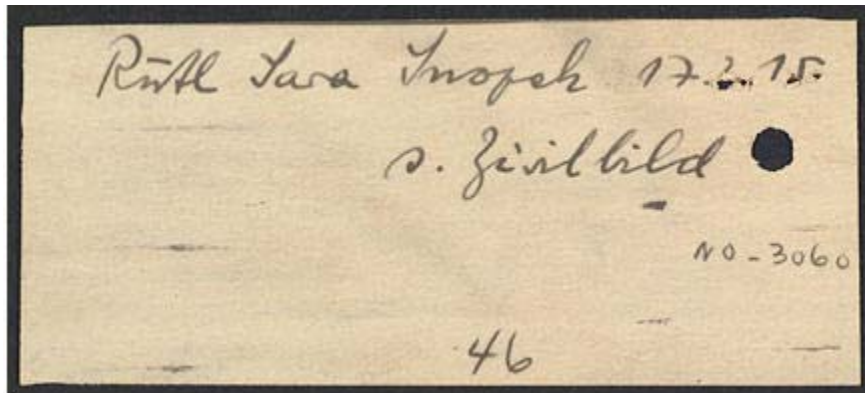 Ruth Sara Snopek 17.2.15.
s. Zivilbild
NO-3060
46